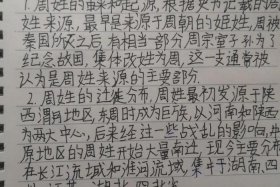 1.周姓的由来和起源,根据史书记载的周
姓来源,最早是来源于周朝的姬姓,周被
秦国所灭之后,有相当部分周宗室子孙为
纪念故国,集体改姓为周,这一支通常被
认为是周姓来源的主要部分.
2.周姓的迁徙分布,周姓最初发源于陕
西渭河地区,东周时成为巨族,以河南和陕西
为两大中心,后来经过一些战乱的影响,
原地区的周姓开始大量南迁,现今主要分布
在长江流域和淮河流域,集中于湖南、四